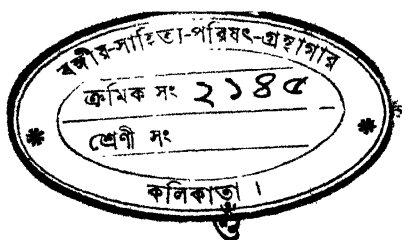 বঙ্গীয়-সাহিত্য-পরিষৎ-গ্রন্থাগার
ক্রমিক সং ২১৪৫
শ্রেণী সং
কলিকাতা ।